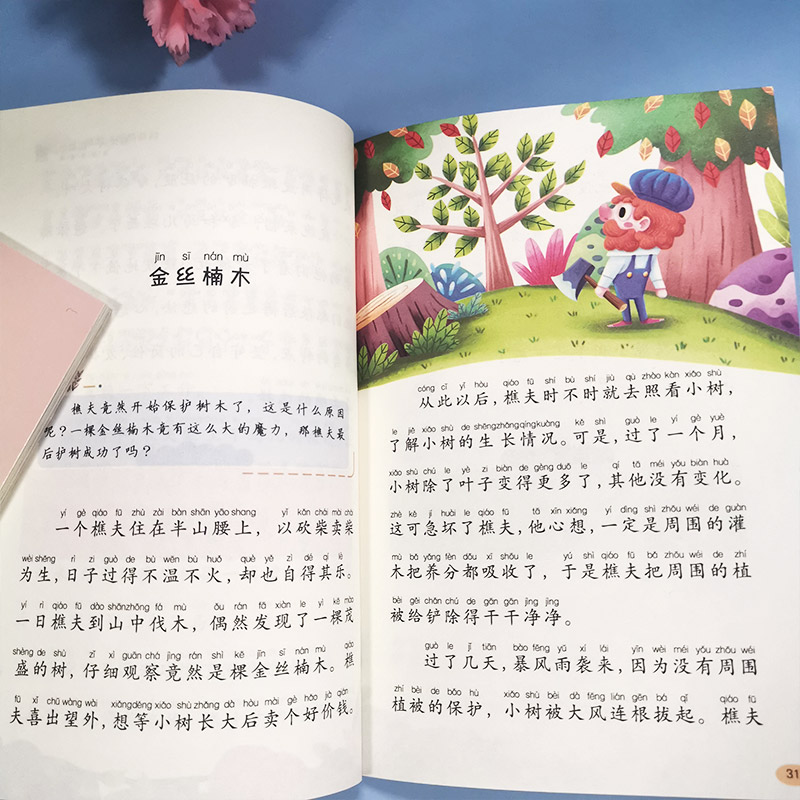 jīn sī nán mù
金丝楠木
樵夫竟然开始保护树木了，这是什么原因
呢？一棵金丝楠木竟有这么大的魔力，那樵夫最
后护树成功了吗？
yí gè qiáo fū zhù zài bàn shān yāo shang yǐ kǎn chái mài chái
一个樵夫住在半山腰上，以砍柴卖柴
wéi shēng rì zi guò de bù wēn bù huǒ què yě zì dé qí lè
为生，日子过得不温不火，却也自得其乐。
yí rì qiáo fū dào shānzhōng fá mù ǒu rán fā xiàn le yì kē mào
一日樵夫到山中伐木，偶然发现了一棵茂
shèng de shù zǐ xì guān chá jìng rán shì kē jīn sī nán mù qiáo
盛的树，仔细观察竟然是棵金丝楠木。樵
fū xǐ chū wàng wài xiǎngděng xiǎo shù zhǎng dà hòu mài gè hǎo jià qián
夫喜出望外，想等小树长大后卖个好价钱。
cóng cǐ yǐ hòu qiáo fū shí bù shí jiù qù zhào kàn xiǎo shù
从此以后，樵夫时不时就去照看小树，
liǎo jiě xiǎo shù de shēngzhǎngqíngkuàng kě shì guò le yí gè yuè
了解小树的生长情况。可是，过了一个月，
xiǎo shù chú le yè zi biàn de gèng duō le qí tā méi yǒu biàn huà
小树除了叶子变得更多了，其他没有变化。
zhè kě jí huài le qiáo fū tā xīn xiǎng yí dìng shì zhōu wéi de guàn
这可急坏了樵夫，他心想，一定是周围的灌
mù bǎ yǎng fèn dōu xī shōu le yú shì qiáo fū bǎ zhōu wéi de zhí
木把养分都吸收了，于是樵夫把周围的植
bèi gěi chǎn chú de gān gān jìng jìng
被给铲除得干干净净。
guò le jǐ tiān bào fēng yǔ xí lái yīn wèi méi yǒu zhōu wéi
过了几天，暴风雨袭来，因为没有周围
zhí bèi de bǎo hù xiǎo shù bèi dà fēng lián gēn bá qǐ qiáo fū
植被的保护，小树被大风连根拔起。樵夫
31